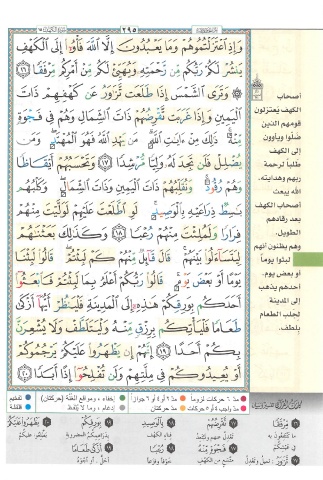 ٢٩٥
وَإِذِ ٱعْتَزَلْتُمُوهُمْ وَمَا يَعْبُدُونَ إِلَّا ٱللَّهَ فَأْوُۥٓا۟ إِلَى ٱلْكَهْفِ
يَنشُرْ لَكُمْ رَبُّكُم مِّن رَّحْمَتِهِۦ وَيُهَيِّئْ لَكُم مِّنْ أَمْرِكُم مِّرْفَقًا ١٦
۞ وَتَرَى ٱلشَّمْسَ إِذَا طَلَعَت تَّزَٰوَرُ عَن كَهْفِهِمْ ذَاتَ
ٱلْيَمِينِ وَإِذَا غَرَبَت تَّقْرِضُهُمْ ذَاتَ ٱلشِّمَالِ وَهُمْ فِى فَجْوَةٍ
مِّنْهُ ۚ ذَٰلِكَ مِنْ ءَايَٰتِ ٱللَّهِ ۗ مَن يَهْدِ ٱللَّهُ فَهُوَ ٱلْمُهْتَدِ ۖ وَمَن
يُضْلِلْ فَلَن تَجِدَ لَهُۥ وَلِيًّا مُّرْشِدًا ١٧ وَتَحْسَبُهُمْ أَيْقَاظًا
وَهُمْ رُقُودٌ ۚ وَنُقَلِّبُهُمْ ذَاتَ ٱلْيَمِينِ وَذَاتَ ٱلشِّمَالِ ۖ وَكَلْبُهُم
بَٰسِطٌ ذِرَاعَيْهِ بِٱلْوَصِيدِ ۚ لَوِ ٱطَّلَعْتَ عَلَيْهِمْ لَوَلَّيْتَ مِنْهُمْ
فِرَارًا وَلَمُلِئْتَ مِنْهُمْ رُعْبًا ١٨ وَكَذَٰلِكَ بَعَثْنَٰهُمْ
لِيَتَسَآءَلُوا۟ بَيْنَهُمْ ۚ قَالَ قَآئِلٌ مِّنْهُمْ كَمْ لَبِثْتُمْ ۖ قَالُوا۟ لَبِثْنَا
يَوْمًا أَوْ بَعْضَ يَوْمٍ ۚ قَالُوا۟ رَبُّكُمْ أَعْلَمُ بِمَا لَبِثْتُمْ فَٱبْعَثُوٓا۟
أَحَدَكُم بِوَرِقِكُمْ هَٰذِهِۦٓ إِلَى ٱلْمَدِينَةِ فَلْيَنظُرْ أَيُّهَآ أَزْكَىٰ
طَعَامًا فَلْيَأْتِكُم بِرِزْقٍ مِّنْهُ وَلْيَتَلَطَّفْ وَلَا يُشْعِرَنَّ
بِكُمْ أَحَدًا ١٩ إِنَّهُمْ إِن يَظْهَرُوا۟ عَلَيْكُمْ يَرْجُمُوكُمْ
أَوْ يُعِيدُوكُمْ فِى مِلَّتِهِمْ وَلَن تُفْلِحُوٓا۟ إِذًا أَبَدًا ٢٠
أصحاب
الكهف يعتزلون
قومهم الذين
ضلوا ويأوون
إلى الكهف
طلباً لرحمة
ربهم وهدايته.
الله يبعث
أصحاب الكهف
بعد رقادهم
الطويل.
وهم يظنون أنهم
لبثوا يوماً
أو بعض يوم.
أحدهم يذهب
إلى المدينة
لجلب الطعام
بلطف.
مد ٦ حركات لزوماً
مد ٢ أو ٤ أو ٦ جوازاً
إخفاء، ومواقع الغنة (حركتان)
تفخيم
مد واجب ٤ أو ٥ حركات
مد حركتان
إدغام، وما لا يُلفظ
قلقلة